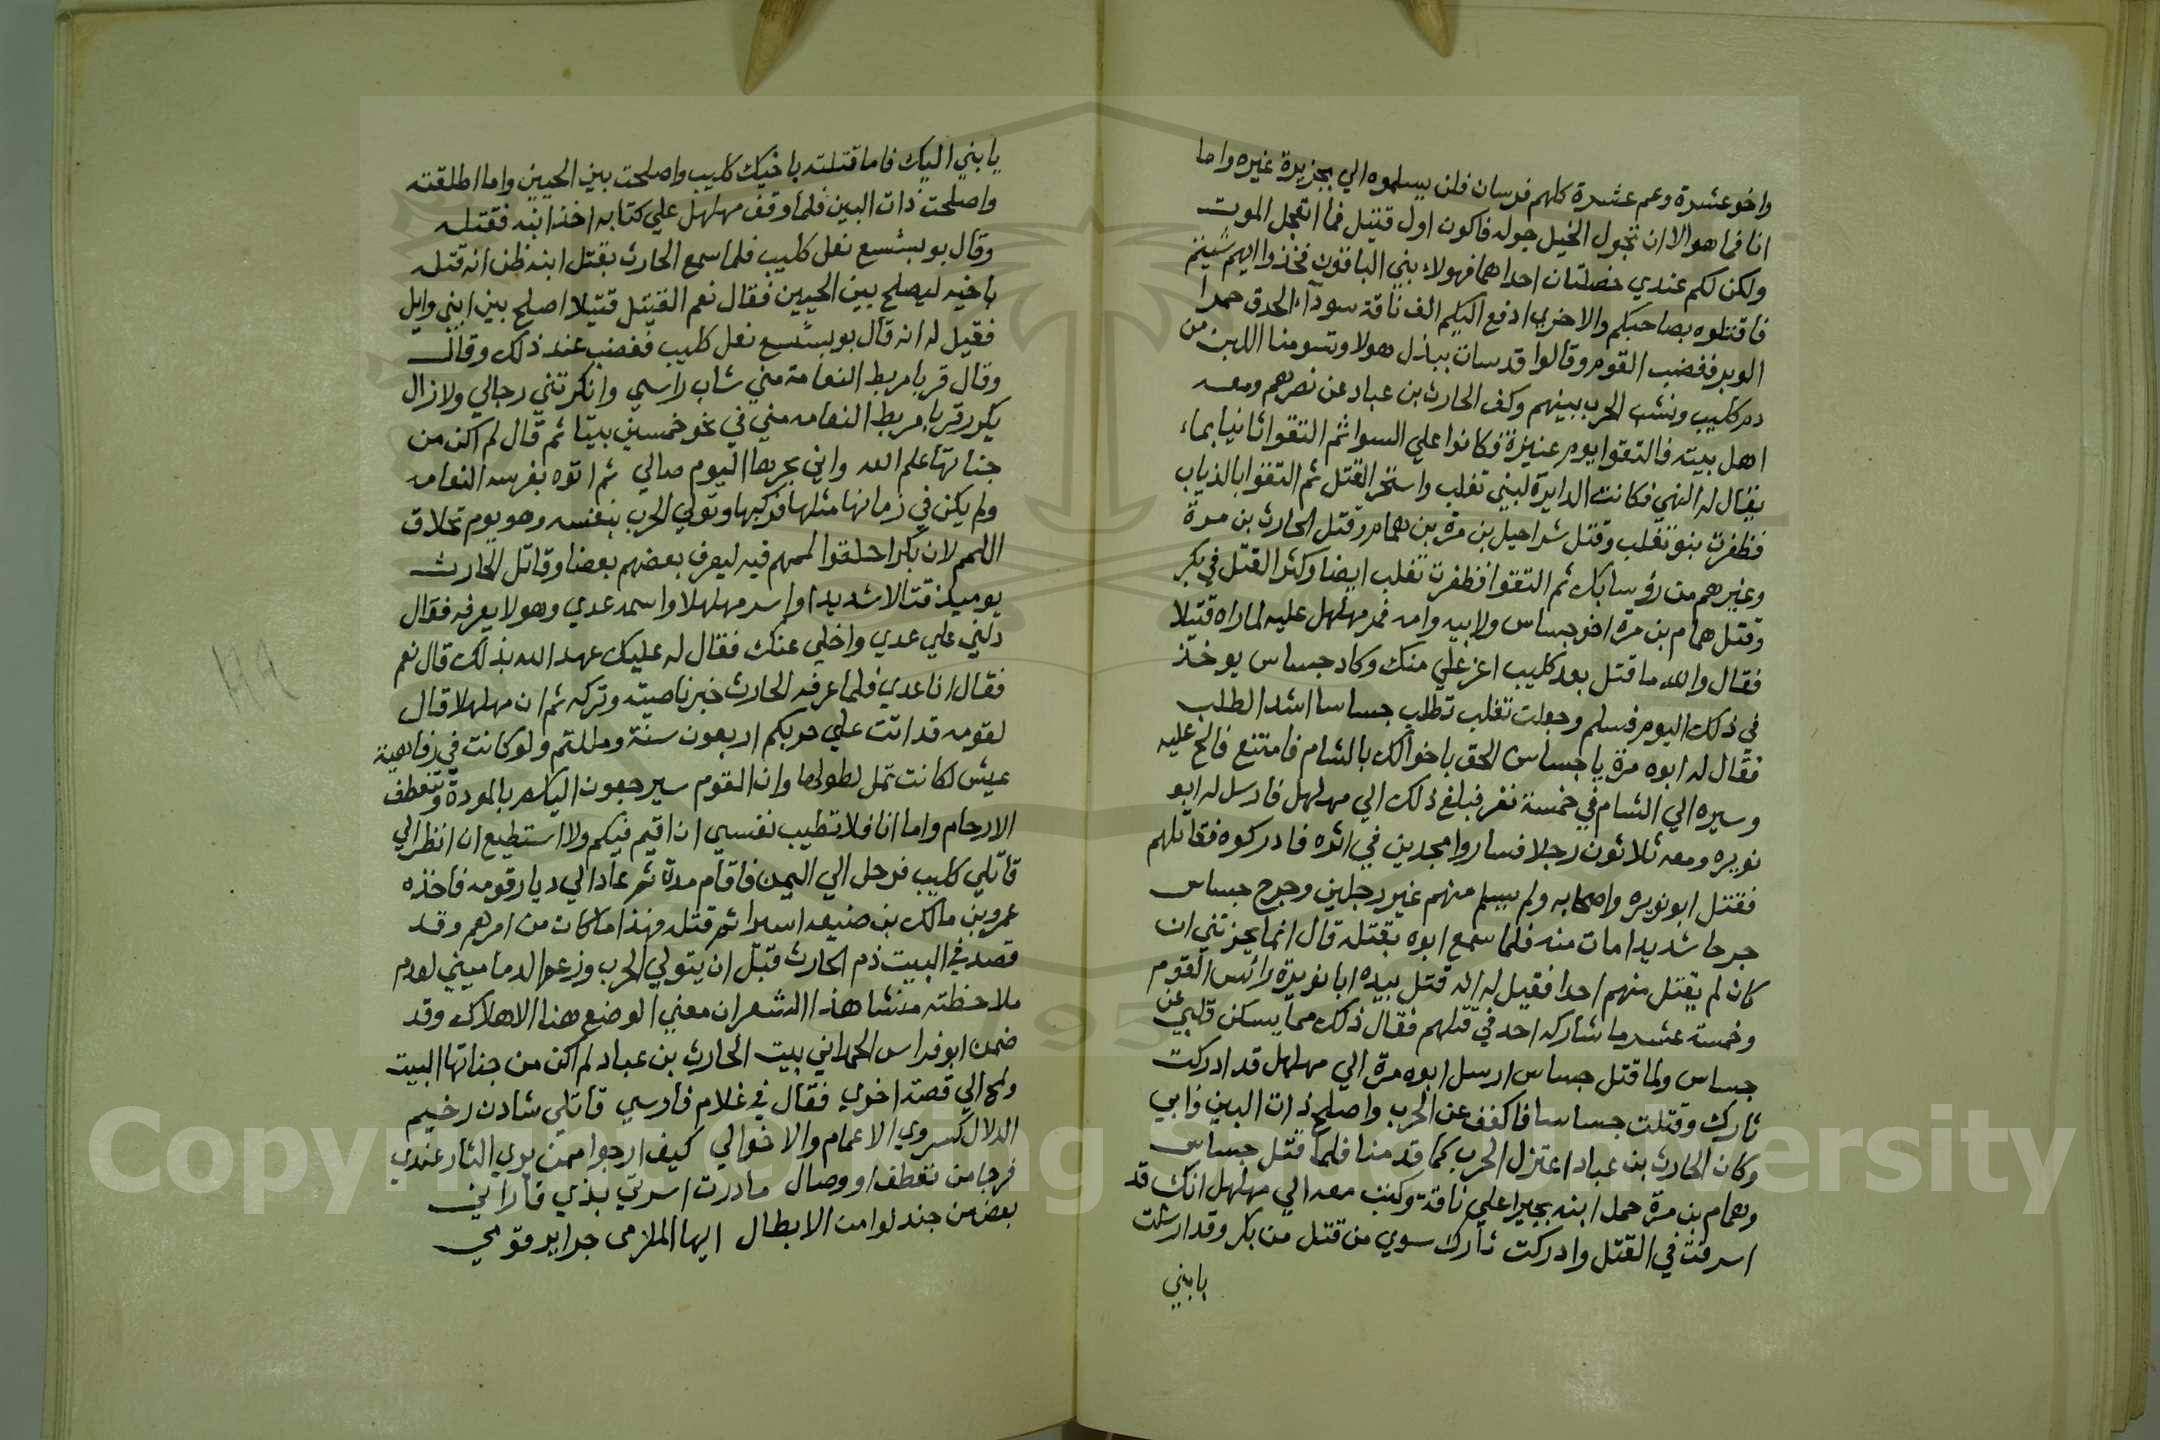 واخو عشرة وعم عشرة كلهم فرسان فلن يسلموه الي بجزيرة غيره واما
انا فما هو الا ان تجول الخيل جوله فاكون اول قتيل فما اتعجل الموت
ولكن لكم عندي خصلتان احداهما فهولاء بني الباقون فخذوا ايهم شيتم
فاقتلوه بصاحبكم والاخري ادفع اليكم الف ناقة سوداء الحدق حمرا
الوبر فغضب القوم وقالوا قد سات ببذل هولا وتسومنا اللبن من
دم كليب ونشب الحرب بينهم وكف الحارث بن عباد عن نصرهم ومعه
اهل بيته فالتقوا يوم عنيزة فكانوا علي السوا ثم التقوا ثانيا بماء
يقال له النهي فكانت الدايرة لبني تغلب واستحر القتل ثم التقوا بالذياب
فظفرت بنو تغلب وقتل شراحيل بن مرة بن همام وقتل الحارث بن مرة
وغيرهم من رؤسا بكر ثم التقوا فظفرت تغلب ايضا وكثر القتل في بكر
وقتل همام بن مرة اخو جساس ولابيه وامه فمر مهلهل عليه لما راه قتيلا
فقال والله ما قتل بعد كليب اعز علي منك وكاد جساس يوخذ
في ذلك اليوم فسلم وجعلت تغلب تطلب جساسا اشد الطلب
فقال له ابوه مرة يا جساس الحق باخوالك بالشام فامتنع فالح عليه
وسيره الي الشام في خمسة نفر فبلغ ذلك الي مهلهل فارسل له ابو
نويره ومعه ثلاثون رجلا فساروا مجدين في اثره فادركوه فقاتلهم
فقتل ابو نويره واصحابه ولم يسلم منهم غير رجلين وجرح جساس
جرحا شديدا مات منه فلما سمع ابوه بقتله قال انما يحزنني ان
كان لم يقتل منهم احدا فقيل له انه قتل بيده ابا نويرة رائس القوم
وخمسة عشر ما شاركه احد في قتلهم فقال ذلك مما يسكن قلبي عن
جساس ولما قتل جساس ارسل ابوه مرة الي مهلهل قد ادركت
ثارك وقتلت جساسا فاكفف عن الحرب واصلح ذات البين فابي
وكان الحارث بن عباد اعتزل الحرب كما قدمنا فلما قتل جساس
وهمام بن مرة حمل ابنه بجيرا علي ناقة وكتب معه الي مهلهل انك قد
اسرفت في القتل وادركت ثارك سوي من قتل من بكر وقد ارسلت
يا بني
يا بني اليك فاما قتلته باخيك كليب واصلحت بين الحيين واما اطلقته
واصلحت ذات البين فلما وقف مهلهل علي كتابه اخذ ابنه فقتله
وقال بو بشسع نعل كليب فلما سمع الحارث بقتل ابنه ظن انه قتله
باخيه ليصلح بين الحيين فقال نعم القتيل قتيلا اصلح بين ابني وايل
فقيل له انه قال بو بشسع نعل كليب فغضب عند ذلك وقال
وقال قربا مربط النعامة مني شاب راسي وانكرتني رجالي ولا زال
يكرر قربا مربط النعامه مني في نحو خمسين بيتا ثم قال لم اكن من
جناتها علم الله واني بحرها اليوم صالي ثم اتوه بفرسه النعامه
ولم يكن في زمانها مثلها فركبها وتولي الحرب بنفسه وهو يوم تحلاق
اللمم لان بكرا حلقوا لممهم فيه ليعرف بعضهم بعضا وقاتل الحارث
يوميذ قتالا شديدا واسر مهلهلا واسمه عدي وهو لا يعرفه فقال
دلني علي عدي واخلي عنك فقال له عليك عهد الله بذلك قال نعم
فقال انا عدي فلما عرفه الحارث جز ناصيته وتركه ثم ان مهلهلا قال
لقومه قد اتت علي حربكم اربعون سنة ومللتم ولو كانت في رفاهية
عيش لكانت تمل لطولها وان القوم سيرجعون اليكم بالمودة وتتعطف
الارحام واما انا فلا تطيب نفسي ان اقيم فيكم ولا استطيع ان انظر الي
قاتلي كليب فرحل الي اليمن فاقام مدة ثم عاد الي ديار قومه فاخذه
عمرو بن مالك بن ضبيعه اسيرا ثم قتله فهذا ما كان من امرهم وقد
قصد في البيت ذم الحارث قبل ان يتولي الحرب وزعم الدماميني لعدم
ملاحظته منشا هذا الشعر ان معني الوضع هنا الاهلاك وقد
ضمن ابو فراس الحمداني بيت الحارث بن عباد لم اكن من جناتها البيت
ولمح الي قصة اخري فقال في غلام فارسي قاتلي شادن رخيم
الدلال كسروي الاعمام والاخوالي كيف ارجوا ممن يري الثار عندي
فرجا من تعطف او وصال ما درت اسرتي بذي قار اني
بعض من جندلوا من الابطال ايها الملزمي جراير قومي